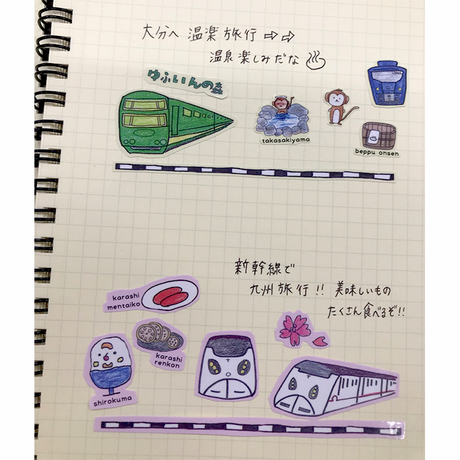 大分へ 温楽旅行 ⇨⇨
温泉楽しみだな♨
ゆふいんの森
takasakiyama
beppu onsen
新幹線で
九州旅行!! 美味しいもの
たくさん食べるぞ!!
karashi
mentaiko
karashi
renkon
shirokuma